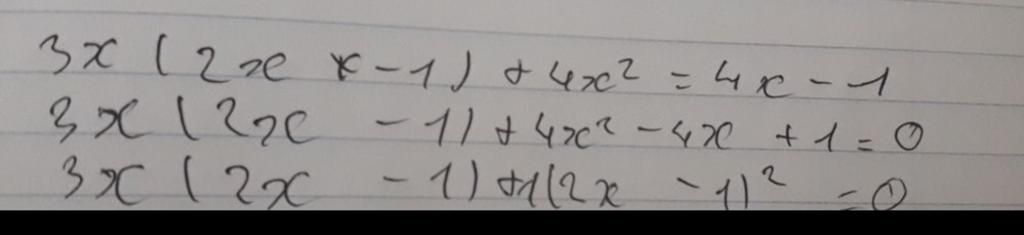 3x (2x - 1) + 4x² = 4x - 1
3x (2x - 1) + 4x² - 4x + 1 = 0
3x (2x - 1) + 1(2x - 1)² = 0